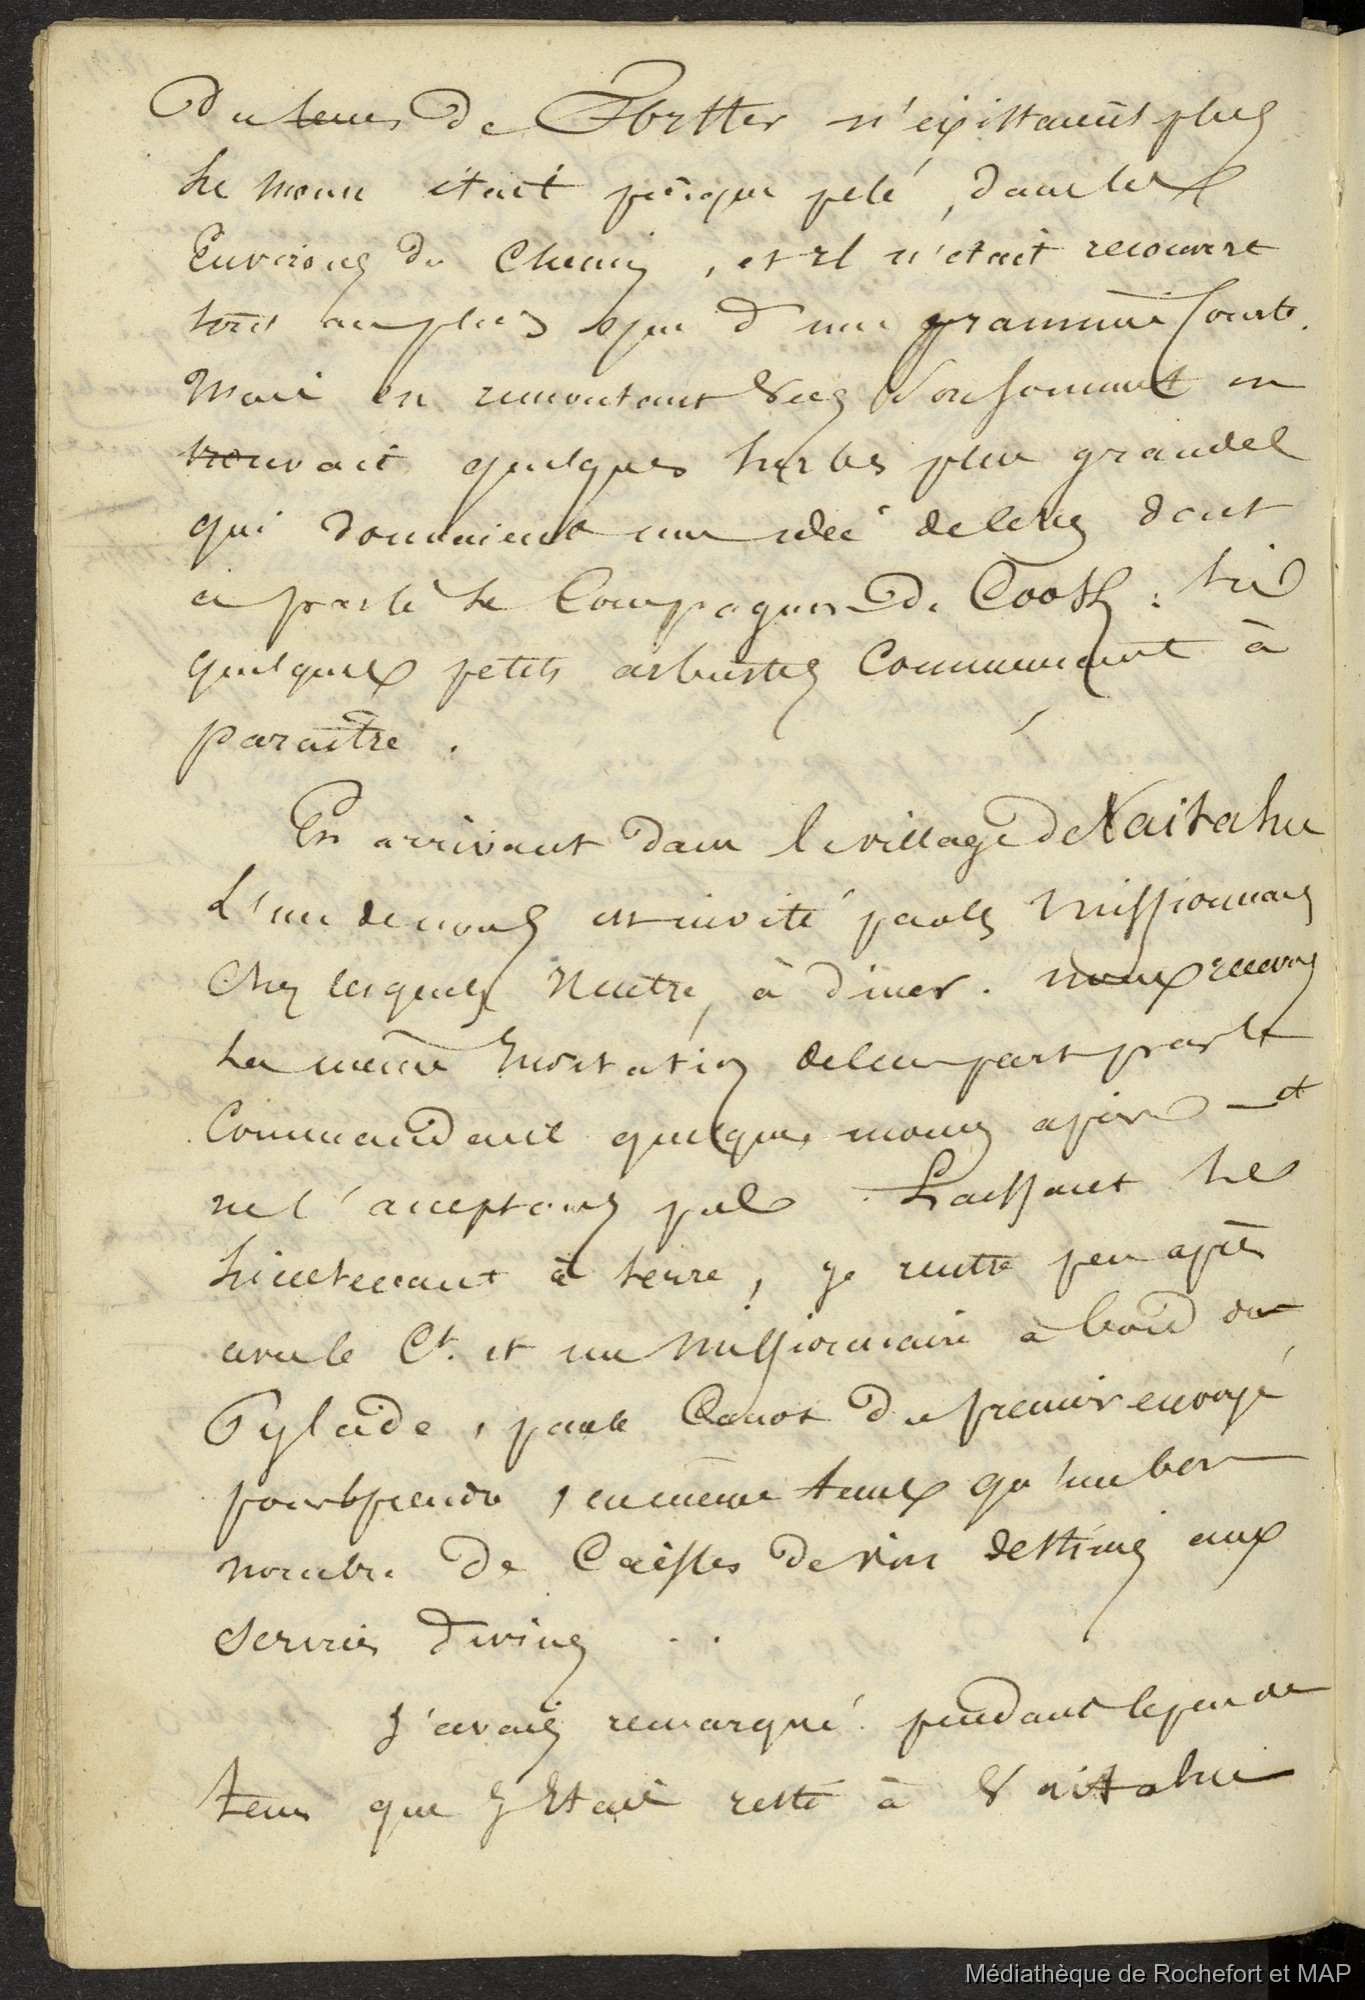 Du tems de Forster n'existaient plus
Le morne était presque pelé, dans les
Environs du Chemin, et il n'était recouvert
tout au plus que d'une graminée Courte.
Mais en remontant vers son sommet on
trouvait quelques herbes plus grandes
qui donnaient une idée de celles dont
a parlé le Compagnon de Cook : Là
quelques petits arbustes Commencent à
paraître.
En arrivant dans le village de Vaitahu
L'un de nous est invité par les Missionnaires
Chez lesquels Nentre, à diner. nous recevons
La même Invitation de leur part par le
Commandant quelques momens après et
ne l'acceptons pas. Laissant Le
Lieutenant à terre, je rentre peu après
avec le Ct. et un Missionnaire à bord du
Pylade, par le Canot du premier envoyé
pour le prendre, en même tems qu'un bon
nombre de Caisses de vin destinés aux
Services divins ..
J'avais remarqué pendant le peu de
tems que J'étais resté à Vaitahu
Médiathèque de Rochefort et MAP